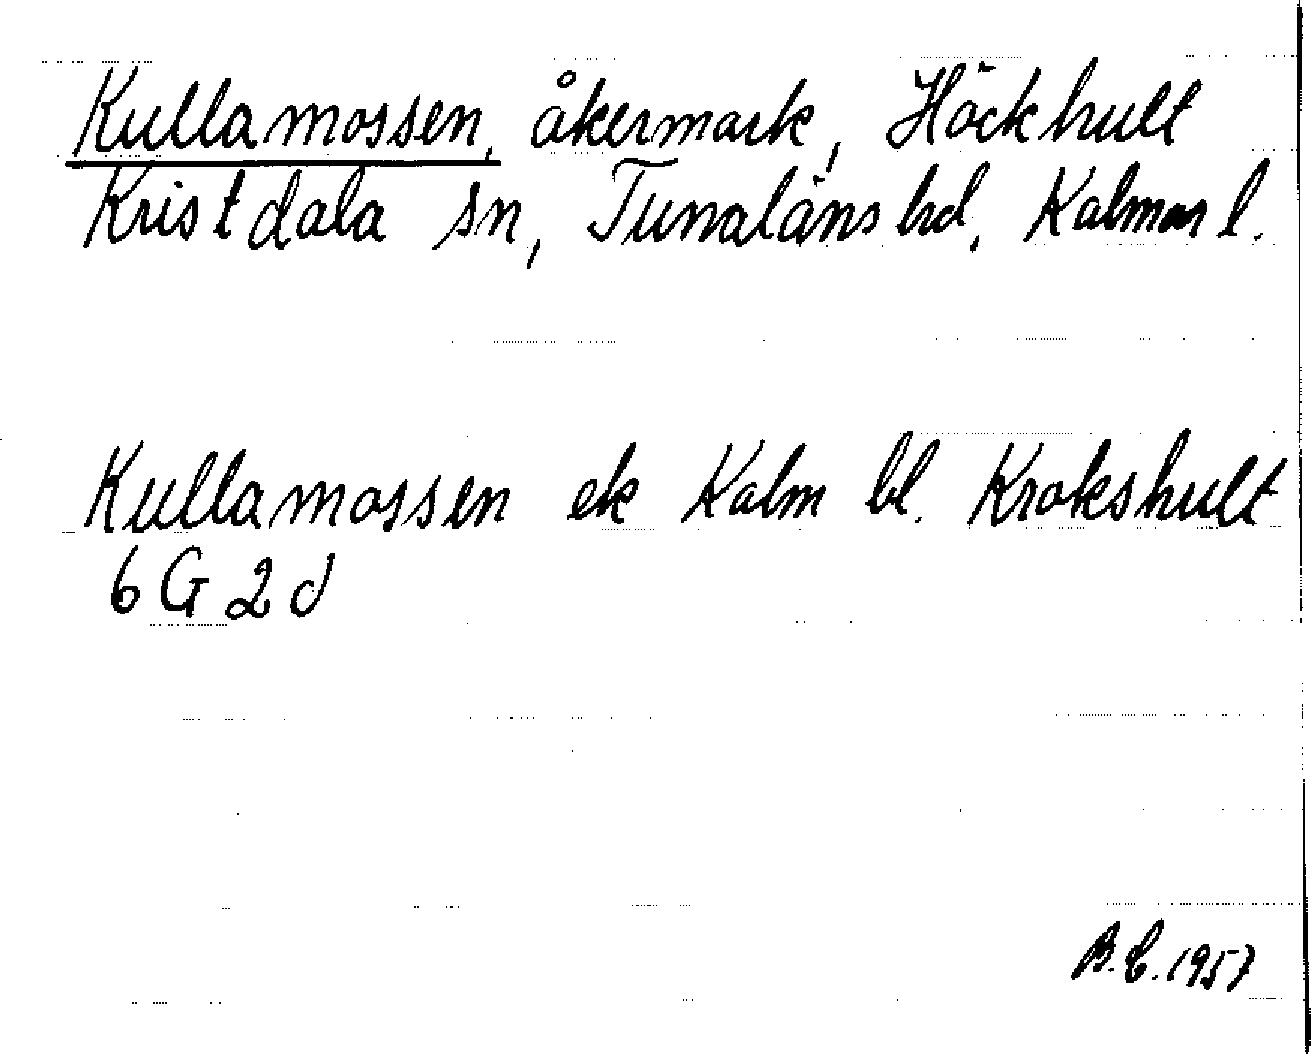 Kullamossen, åkermark, Höckhult
Kristdala sn, Tunaläns hd, Kalmar l.
Kullamossen ek Kalm bl. Krokshult
6 G 2 d
B.E. 1957